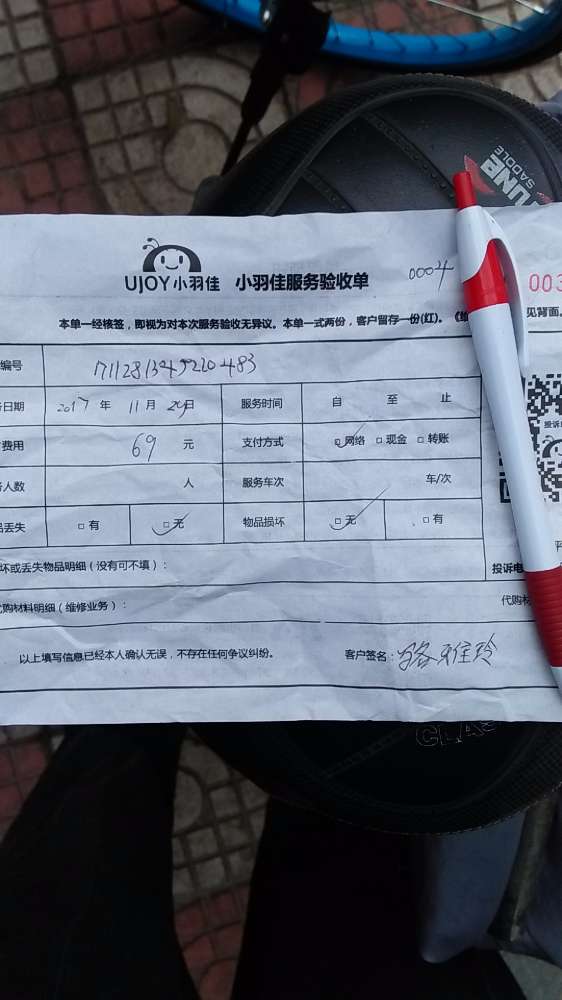 UNE
SADDLE
UJOY小羽佳 小羽佳服务验收单 0004 003
本单一经核签，即视为对本次服务验收无异议。本单一式两份，客户留存一份(红)。 见背面。
编号
日期 2017 年 11 月 29日 服务时间 自 至 止
费用 69 元 支付方式 网络 现金 转账
人数 人 服务车次 车/次
丢失 有 无 物品损坏 无 有
坏或丢失物品明细（没有可不填）： 投诉电
代购材料明细（维修业务）： 代购材
以上填写信息已经本人确认无误，不存在任何争议纠纷。 客户签名：骆雅玲
CLA